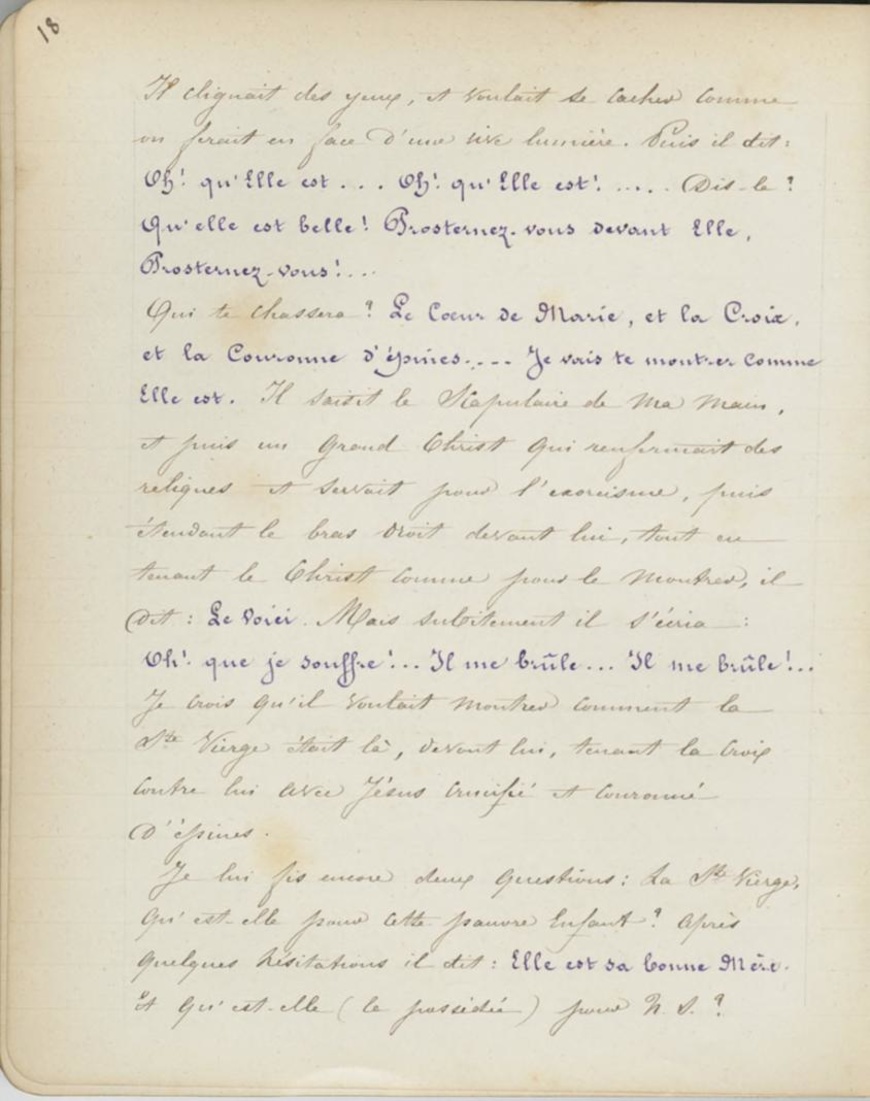 18
Il clignait des yeux, et voulait se cacher comme
on ferait en face d'une vive lumière. Puis il dit :
Oh! qu'Elle est . . . Oh! qu'Elle est! ..... Dis-le ?
Qu'elle est belle! Prosternez-vous devant Elle,
Prosternez-vous!...
Qui te chassera ? Le Cœur de Marie, et la Croix,
et la Couronne d'épines.... Je vais te montrer comme
Elle est. Il saisit le Scapulaire de ma main,
et puis un grand Christ qui renfermait des
reliques et servait pour l'exorcisme, puis
étendant le bras droit devant lui, tout en
tenant le Christ comme pour le montrer, il
dit : Le voici. Mais subitement il s'écria :
Oh! que je souffre!... Il me brûle... Il me brûle!...
Je crois qu'il voulait montrer comment la
Ste Vierge était là, devant lui, tenant la croix
contre lui avec Jésus crucifié et couronné
d'épines.
Je lui fis encore deux questions : La Ste Vierge,
qu'est-elle pour cette pauvre Enfant ? Après
quelques hésitations il dit : Elle est sa bonne Mère.
Et qu'est-elle (la possédée) pour N. S. ?